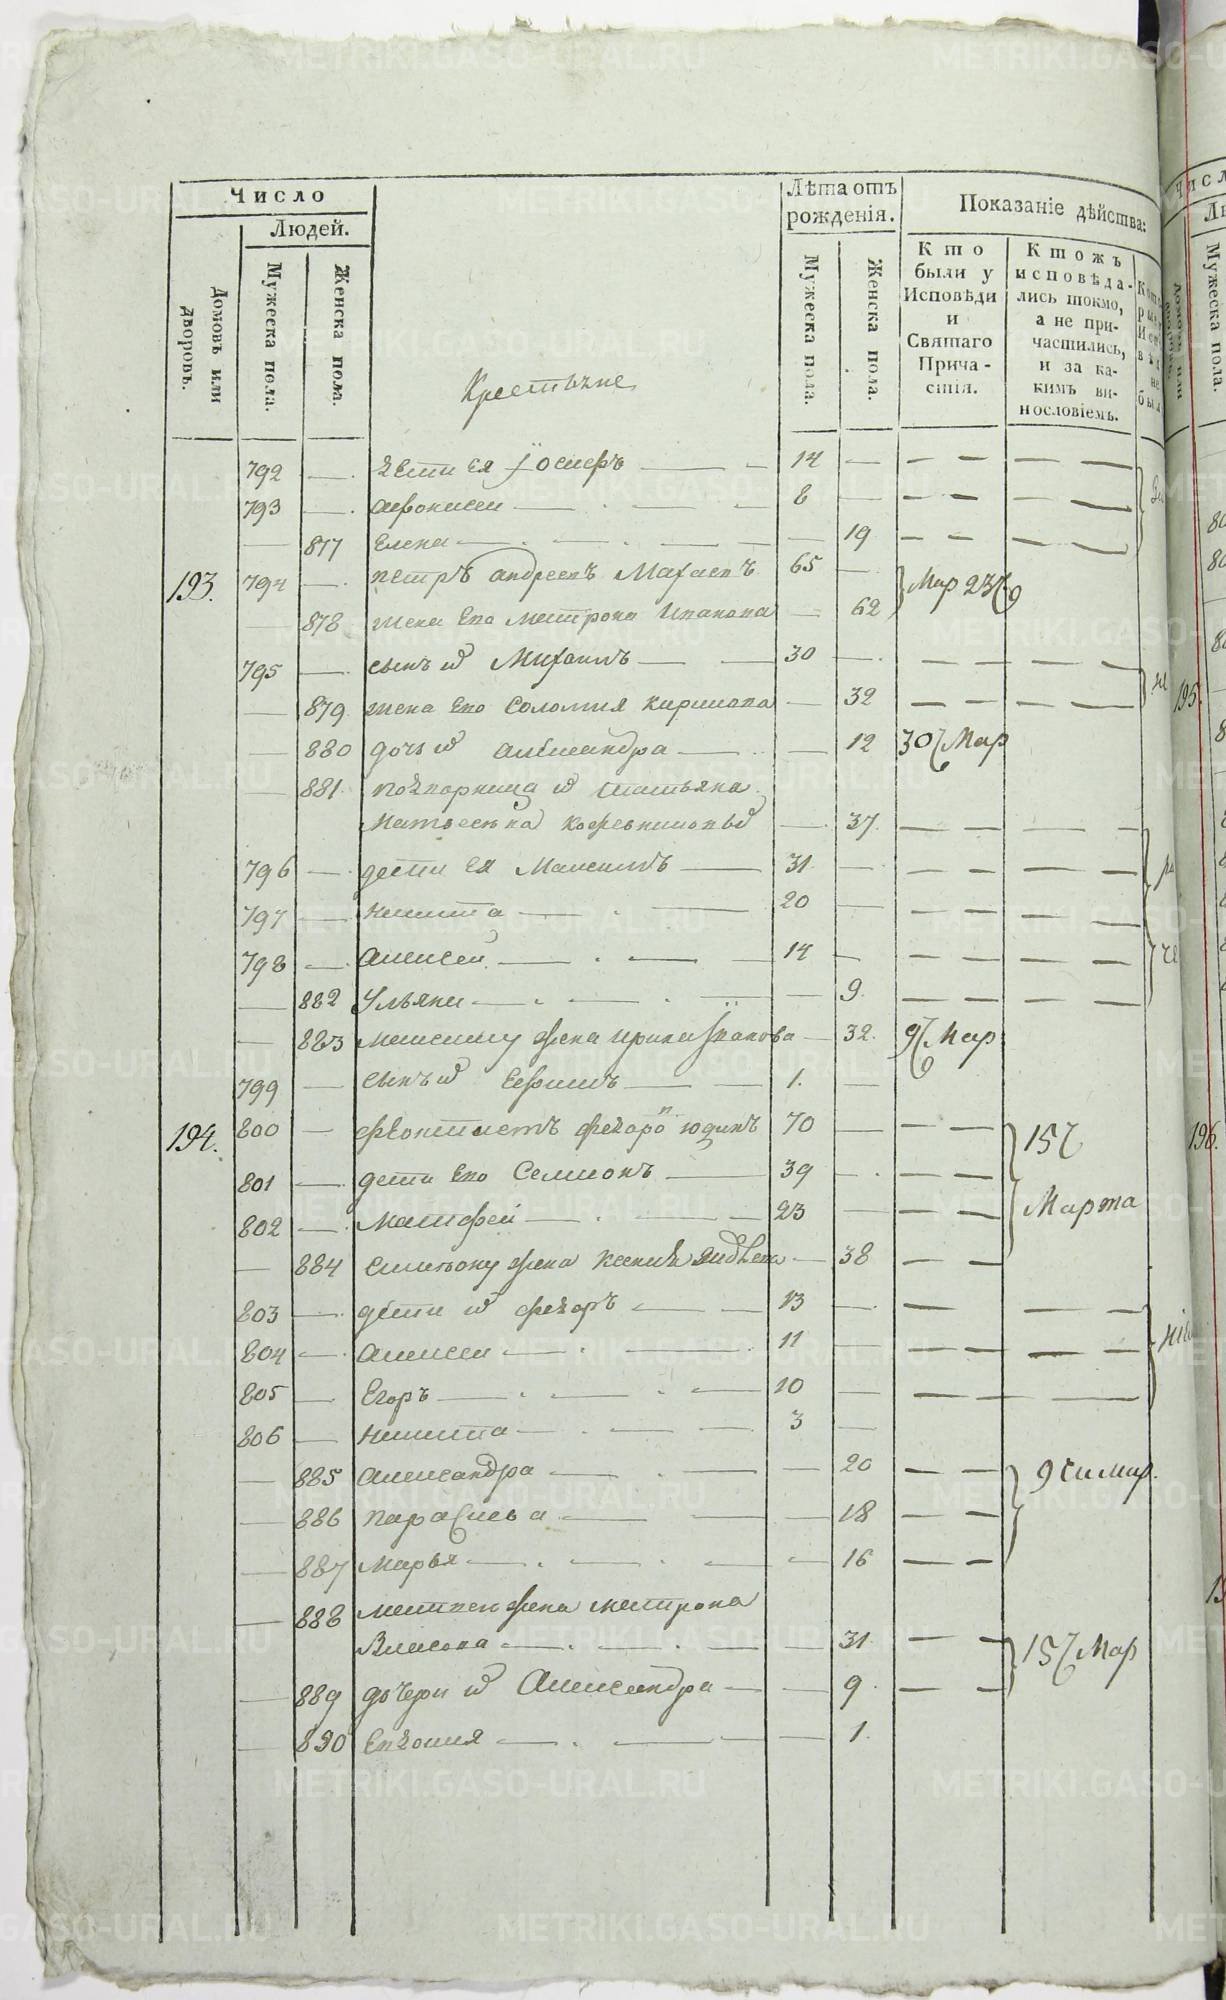 Число
Людей.
Домовъ или дворовъ.
Мужеска пола.
Женска пола.
Крестьяне
Лѣта отъ рожденія.
Мужеска пола.
Женска пола.
Показаніе дѣйства:
Кто были у Исповѣди и Святаго Причастія.
Ктожъ исповѣдались токмо, а не причастились, и за какимъ винословіемъ.
792 — дети ея Иосифъ — 14 — — — — —
793 — афонасеи — 8 — — — — —
— 877 Елена — — 19 — — — —
193. 794 — петръ андреевъ Махаевъ 65 — Мар 23
— 878 жена Ево Матрона Иванова — 62
795 — сынъ иѡ Михаилъ — 30 — — — — —
— 879 жена Ево Соломия Кирилова — 32 — — — —
— 880 дочь иѡ александра — — 12 30 Мар
— 881 иѡ татьяна
— 37 — — — —
796 — дети ея Максимъ — 31 — — — — —
797 — никита — 20 — — — — —
798 — алексей — 14 — — — — —
— 882 Ульяна — — 9 — — — —
— 883 максиму жена ирина Иванова — 32. 9 Мар
799 — сынъ иѡ Ефимъ — 1. —
194. 800 — феоктистъ федоровъ юдинъ 70 — — — 15
801 — дети Ево Семионъ — 39 — — —
802 — Матфей — 23 — — — Марта
— 884 семиону жена Ксения — 38 — —
803 — дети иѡ федоръ — 13 — — — — —
804 — алексеи — 11 — — — — —
805 — Егоръ — 10 — — — — —
806 — никита — 3 —
— 885 александра — — 20 — — 9 мар.
— 886 парасковья — — 18 — —
— 887 марья — — 16 — —
— 888 матвея жена матрона
Власова — — 31 — — 15 Мар
— 889 дочери иѡ Александра — — 9 — —
— 890 Евдокия — — 1.
195.
196.
Мужеска пола.